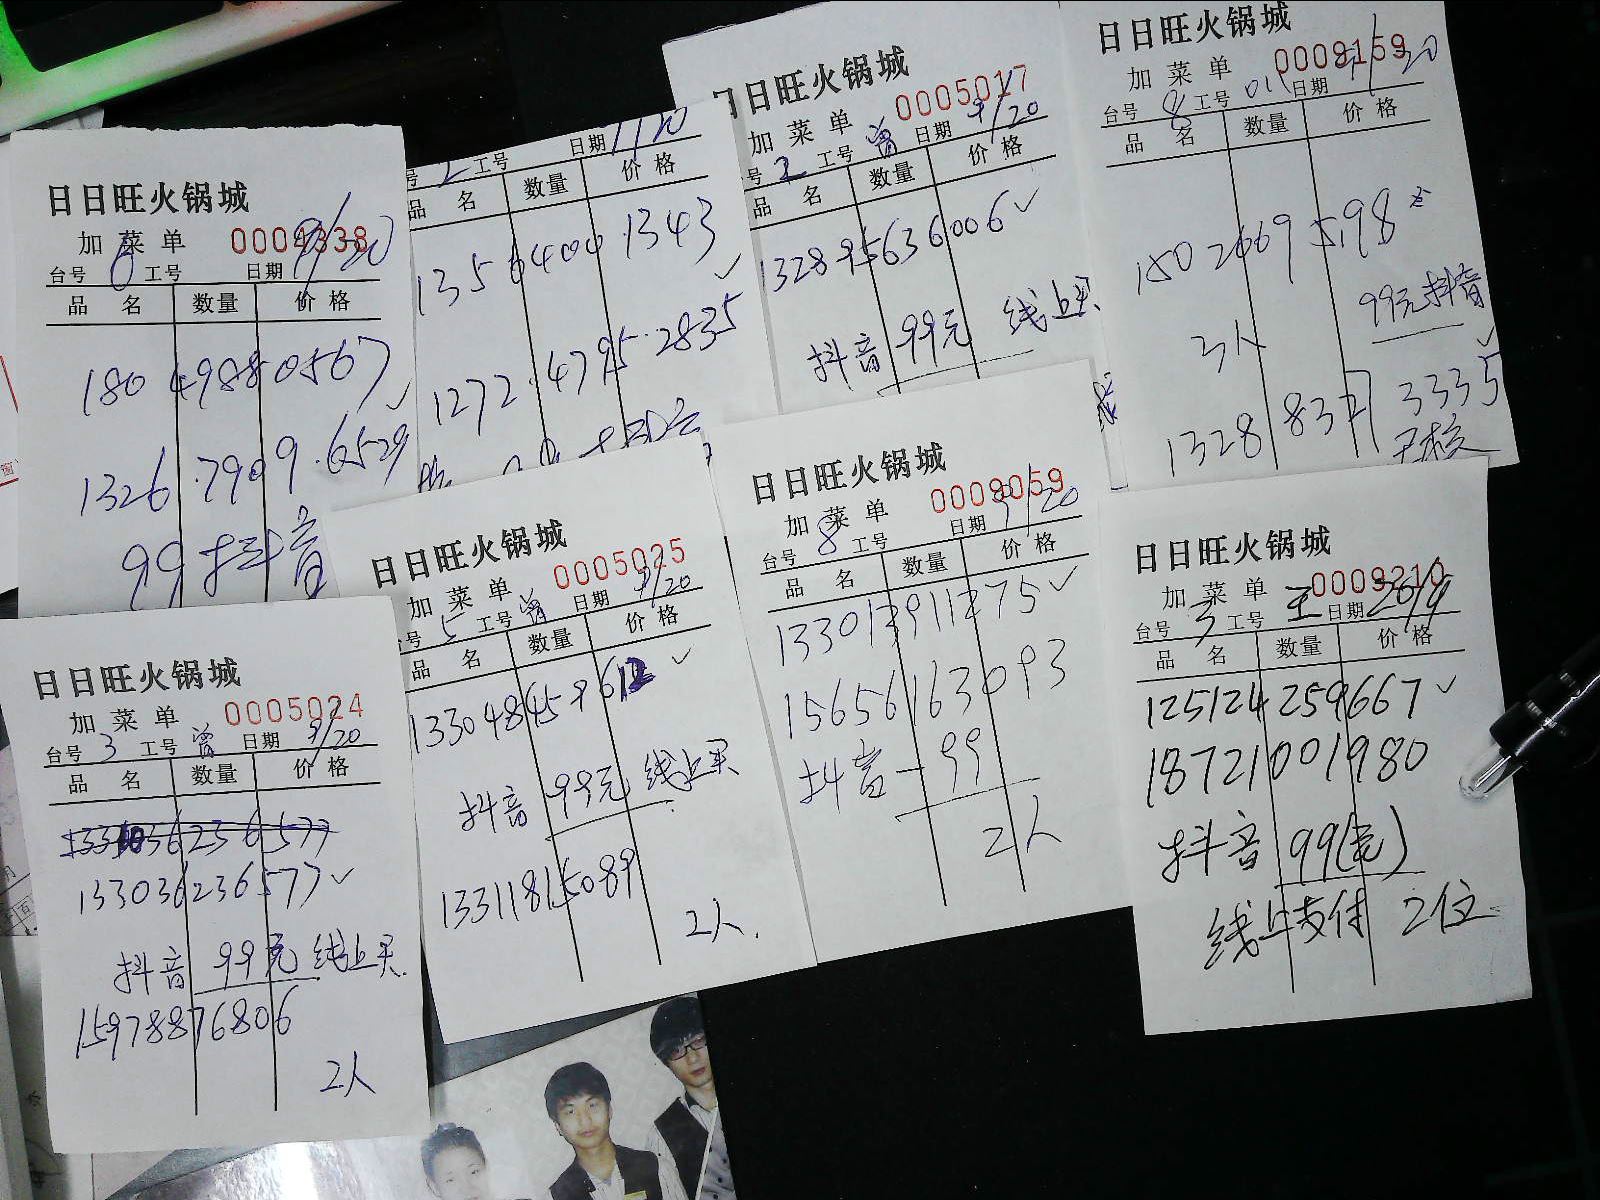 日日旺火锅城
加菜单 0004338
台号 8 工号 日期 9/20
品名 数量 价格
180 4988 0567
1326 7909 6529
99抖音
2 工号 日期 /20
品名 数量 价格
1356400 1343
1272 4795 2835
日日旺火锅城
加菜单 0005017
号 2 工号 曾 日期 9/20
品名 数量 价格
1328 9563 6006
抖音 99元 线上买
日日旺火锅城
加菜单 0009159
台号 8 工号 01 日期 9/20
品名 数量 价格
150 2669 5198
99元抖音
3人
1328 837 3335
日日旺火锅城
加菜单 0005024
台号 3 工号 曾 日期 9/20
品名 数量 价格
133036236577
抖音 99元 线上买
15978876806
2人
日日旺火锅城
加菜单 0005025
台号 5 工号 曾 日期 9/20
品名 数量 价格
133048459612
抖音 99元 线上买
13311815089
2人.
日日旺火锅城
加菜单 0009059
台号 8 工号 日期 9/20
品名 数量 价格
133013911275
15656163093
抖音-99
2人
日日旺火锅城
加菜单 0009210
台号 3 工号 王 日期 20/9
品名 数量 价格
125124259667
18721001980
抖音 99(元)
线上支付 2位